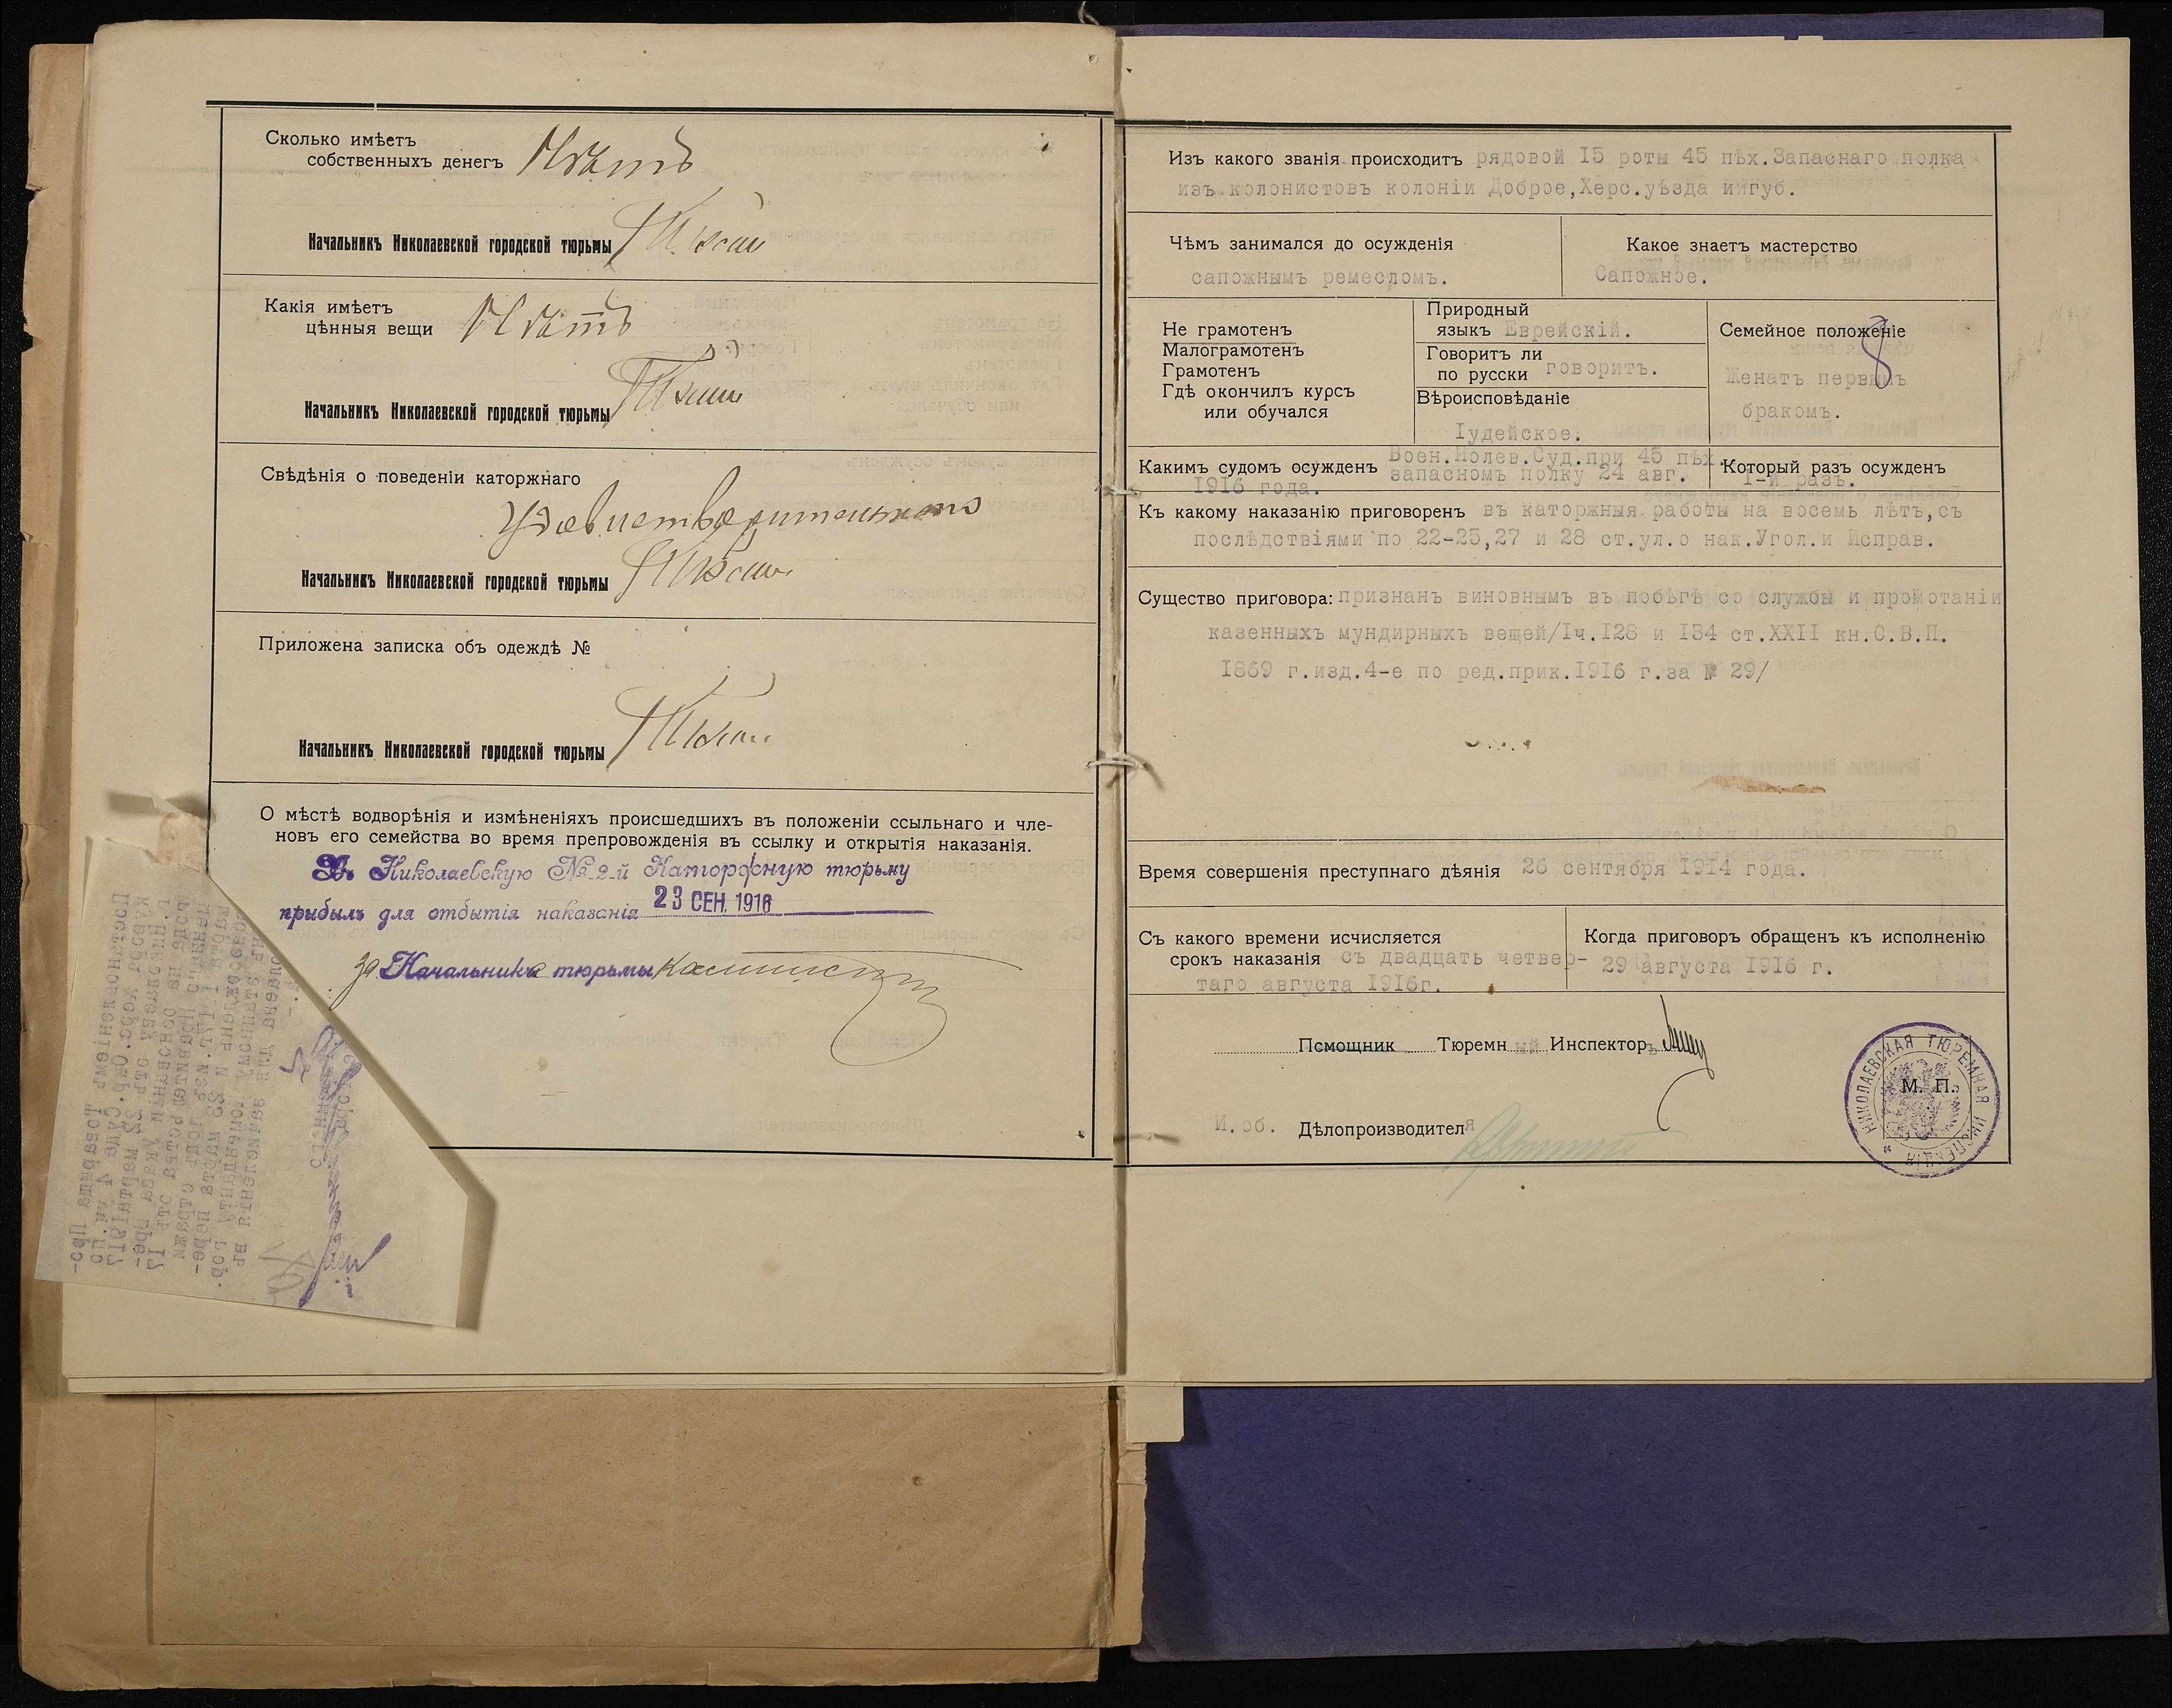 Сколько имѣетъ
собственныхъ денегъ Нѣтъ
Начальникъ Николаевской городской тюрьмы
Какія имѣетъ
цѣнныя вещи Нѣтъ
Начальникъ Николаевской городской тюрьмы
Свѣдѣнія о поведеніи каторжнаго
Удовлетворительно
Начальникъ Николаевской городской тюрьмы
Приложена записка объ одеждѣ №
Начальникъ Николаевской городской тюрьмы
О мѣстѣ водворѣнія и измѣненіяхъ происшедшихъ въ положеніи ссыльнаго и чле-
новъ его семейства во время препровожденія въ ссылку и открытія наказанія.
Въ Николаевскую № 2-й Каторжную тюрьму
прибылъ для отбытія наказанія 23 СЕН. 1916
За Начальника тюрьмы
Изъ какого званія происходитъ рядовой 15 роты 45 пѣх.Запаснаго полка
изъ колонистовъ колоніи Доброе,Херс.уѣзда иигуб.
Чѣмъ занимался до осужденія
сапожнымъ ремесломъ.
Какое знаетъ мастерство
Сапожное.
Не грамотенъ
Малограмотенъ
Грамотенъ
Гдѣ окончилъ курсъ
или обучался
Природный
языкъ Еврейскій.
Говоритъ ли
по русски говоритъ.
Вѣроисповѣданіе
Іудейское.
Семейное положеніе
8
Женатъ первымъ
бракомъ.
Какимъ судомъ осужденъ Воен.Полев.Суд.при 45 пѣх.
запасномъ полку 24 авг.
1916 года.
Который разъ осужденъ
1-й разъ.
Къ какому наказанію приговоренъ въ каторжныя работы на восемь лѣтъ,съ
послѣдствіями по 22-25,27 и 28 ст.ул.о нак.Угол.и Исправ.
Существо приговора: признанъ виновнымъ въ побѣгѣ со службы и промотаніи
казенныхъ мундирныхъ вещей/1ч.128 и 134 ст.XXII кн.С.В.П.
1869 г.изд.4-е по ред.прик.1916 г.за № 29/
Время совершенія преступнаго дѣянія 26 сентября 1914 года.
Съ какого времени исчисляется
срокъ наказанія съ двадцать четвер-
таго августа 1916г.
Когда приговоръ обращенъ къ исполненію
29 августа 1916 г.
Помощник Тюремный Инспекторъ
И.об. Дѣлопроизводителя
М. П.
НИКОЛАЕВСКАЯ ТЮРЕМНАЯ ИНСПЕКЦІЯ